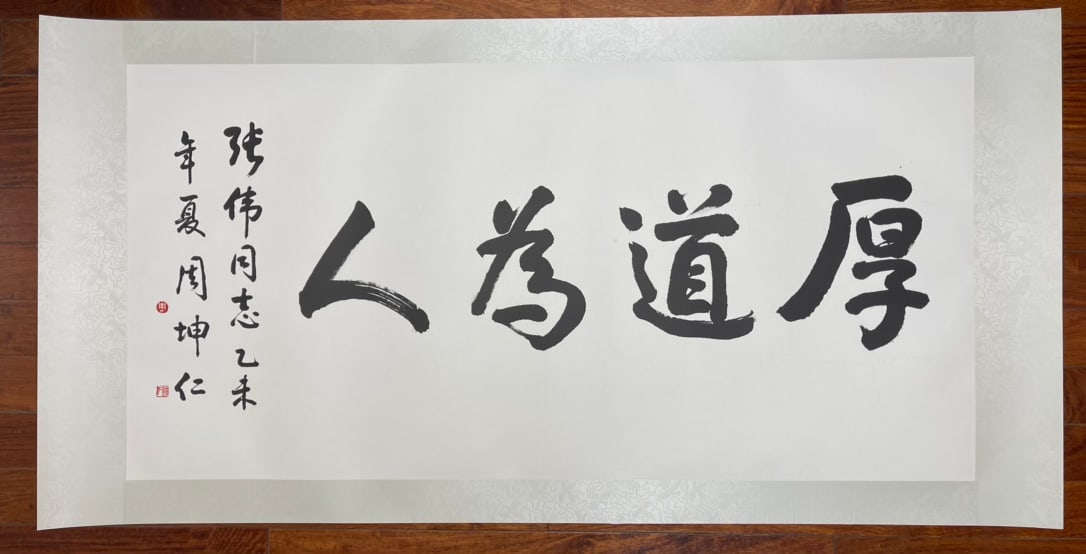 厚道為人
张伟同志乙未
年夏周坤仁